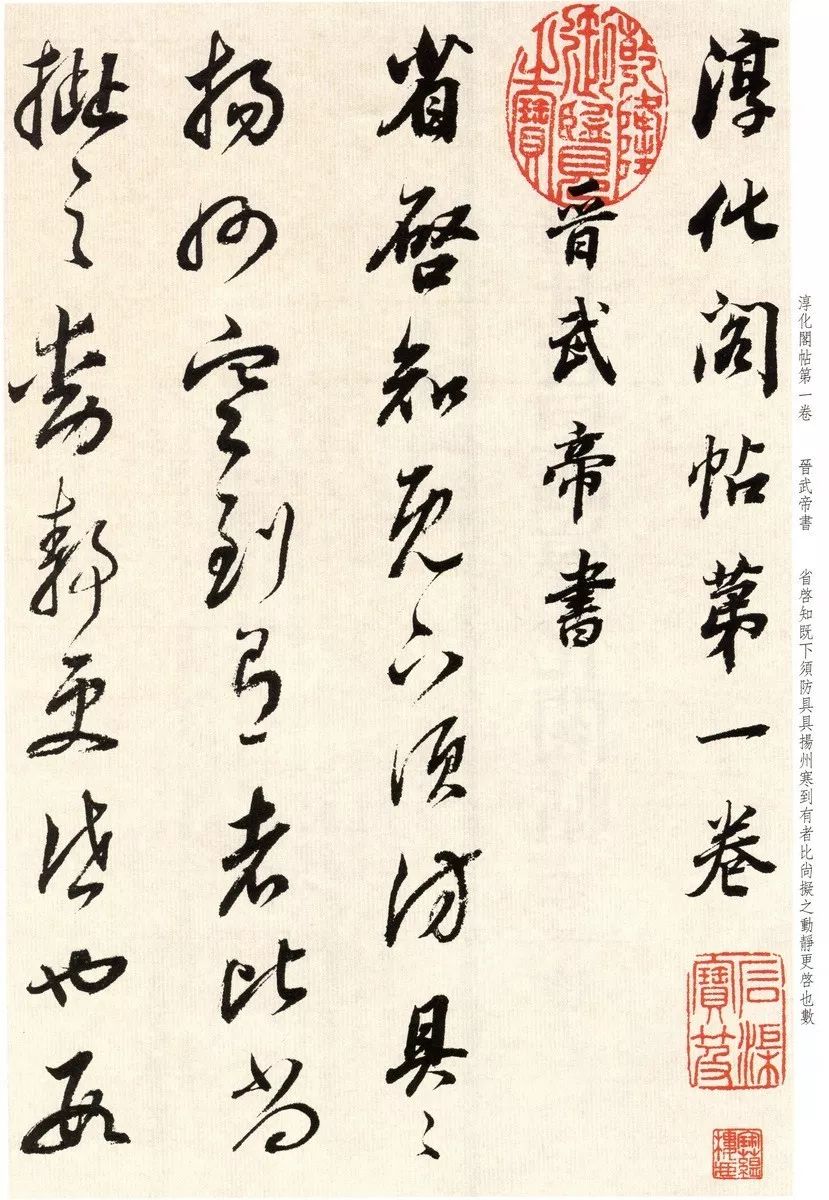 淳化阁帖第一卷
晋武帝書
省啓知既下須防具〻
揚州寒到有者比尚
擬之動静更啓也數
乾隆御覽之寶
寶笈
寶蘊樓
淳化閣帖第一卷　晉武帝書　省啓知既下須防具具揚州寒到有者比尚擬之動靜更啓也數